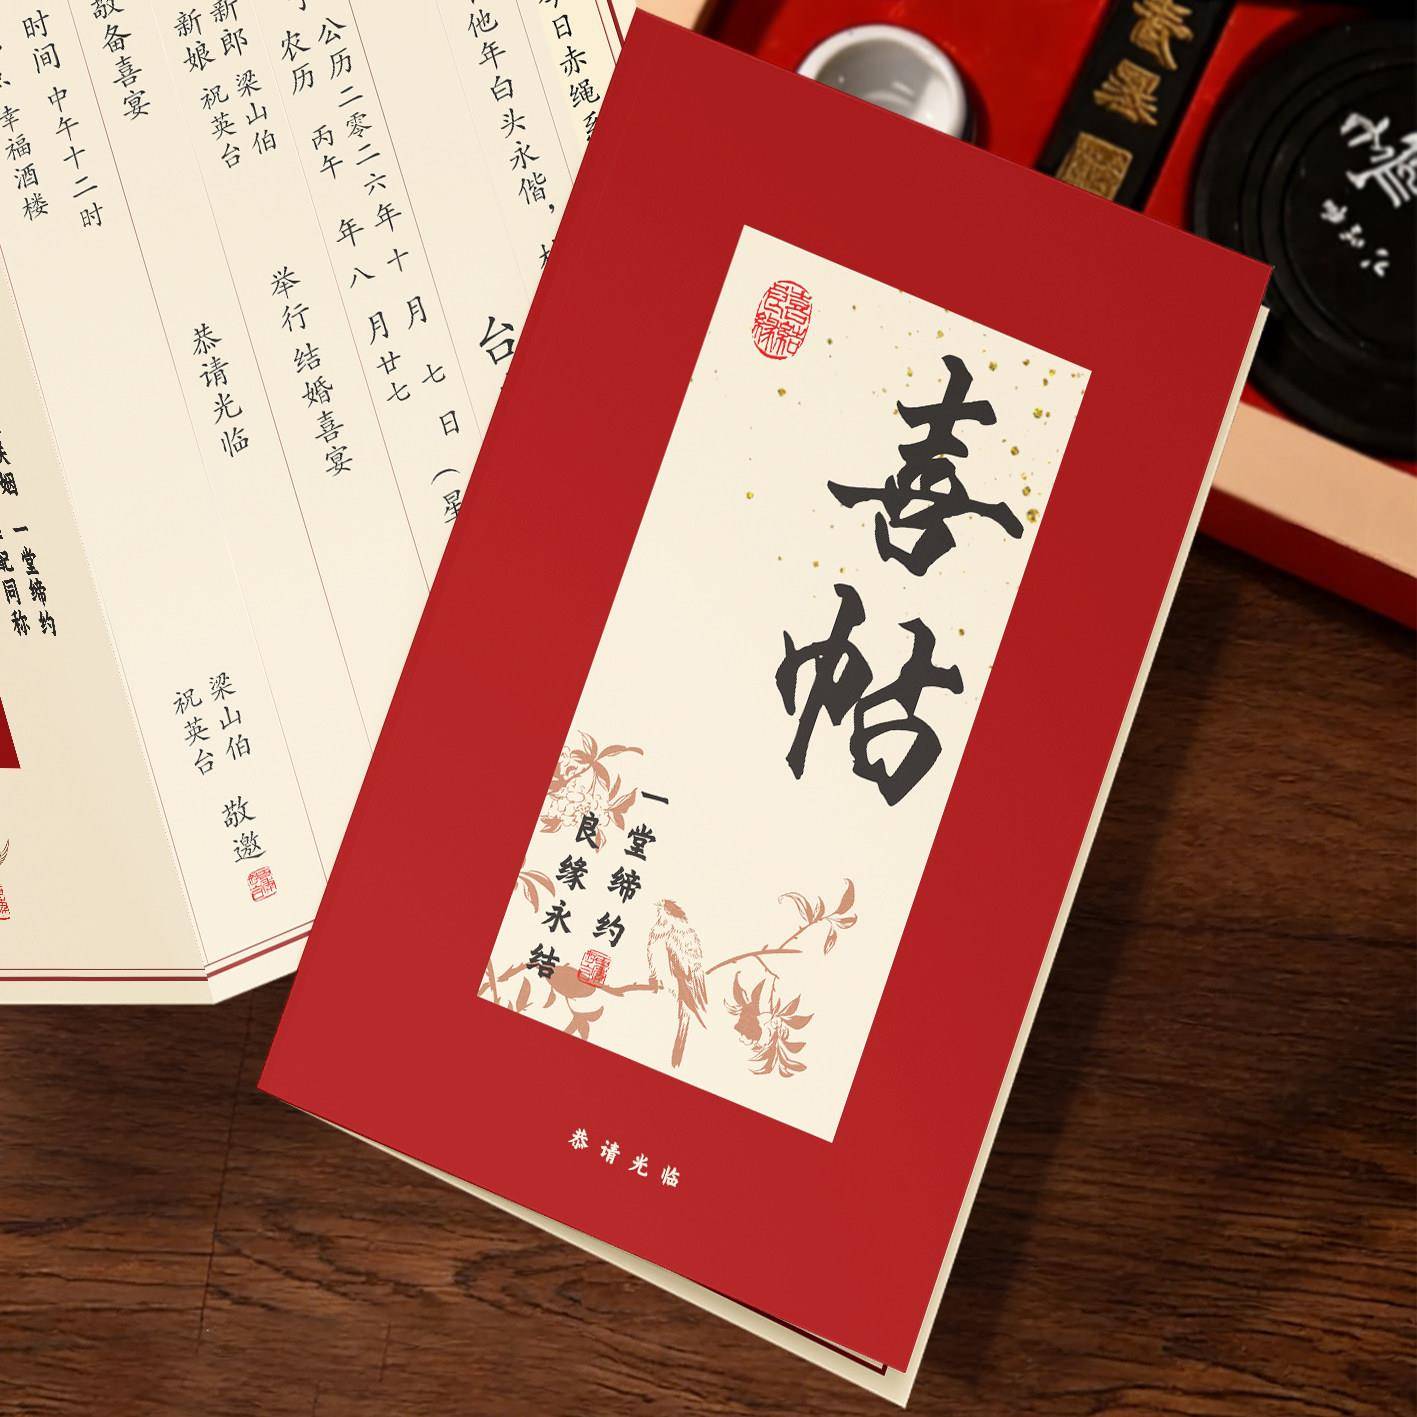 喜帖
喜结良缘
一堂缔约
良缘永结
恭请光临
今日赤绳系
他年白头永偕，
台
公历 二零二六年 十 月 七 日 （星
农历 丙午 年 八 月 廿七
举行 结婚喜宴
新郎 梁山伯
新娘 祝英台
恭请光临
敬备喜宴
时间 中午十二时
幸福酒楼
梁山伯
祝英台
敬邀
一堂缔约
配同称
姻